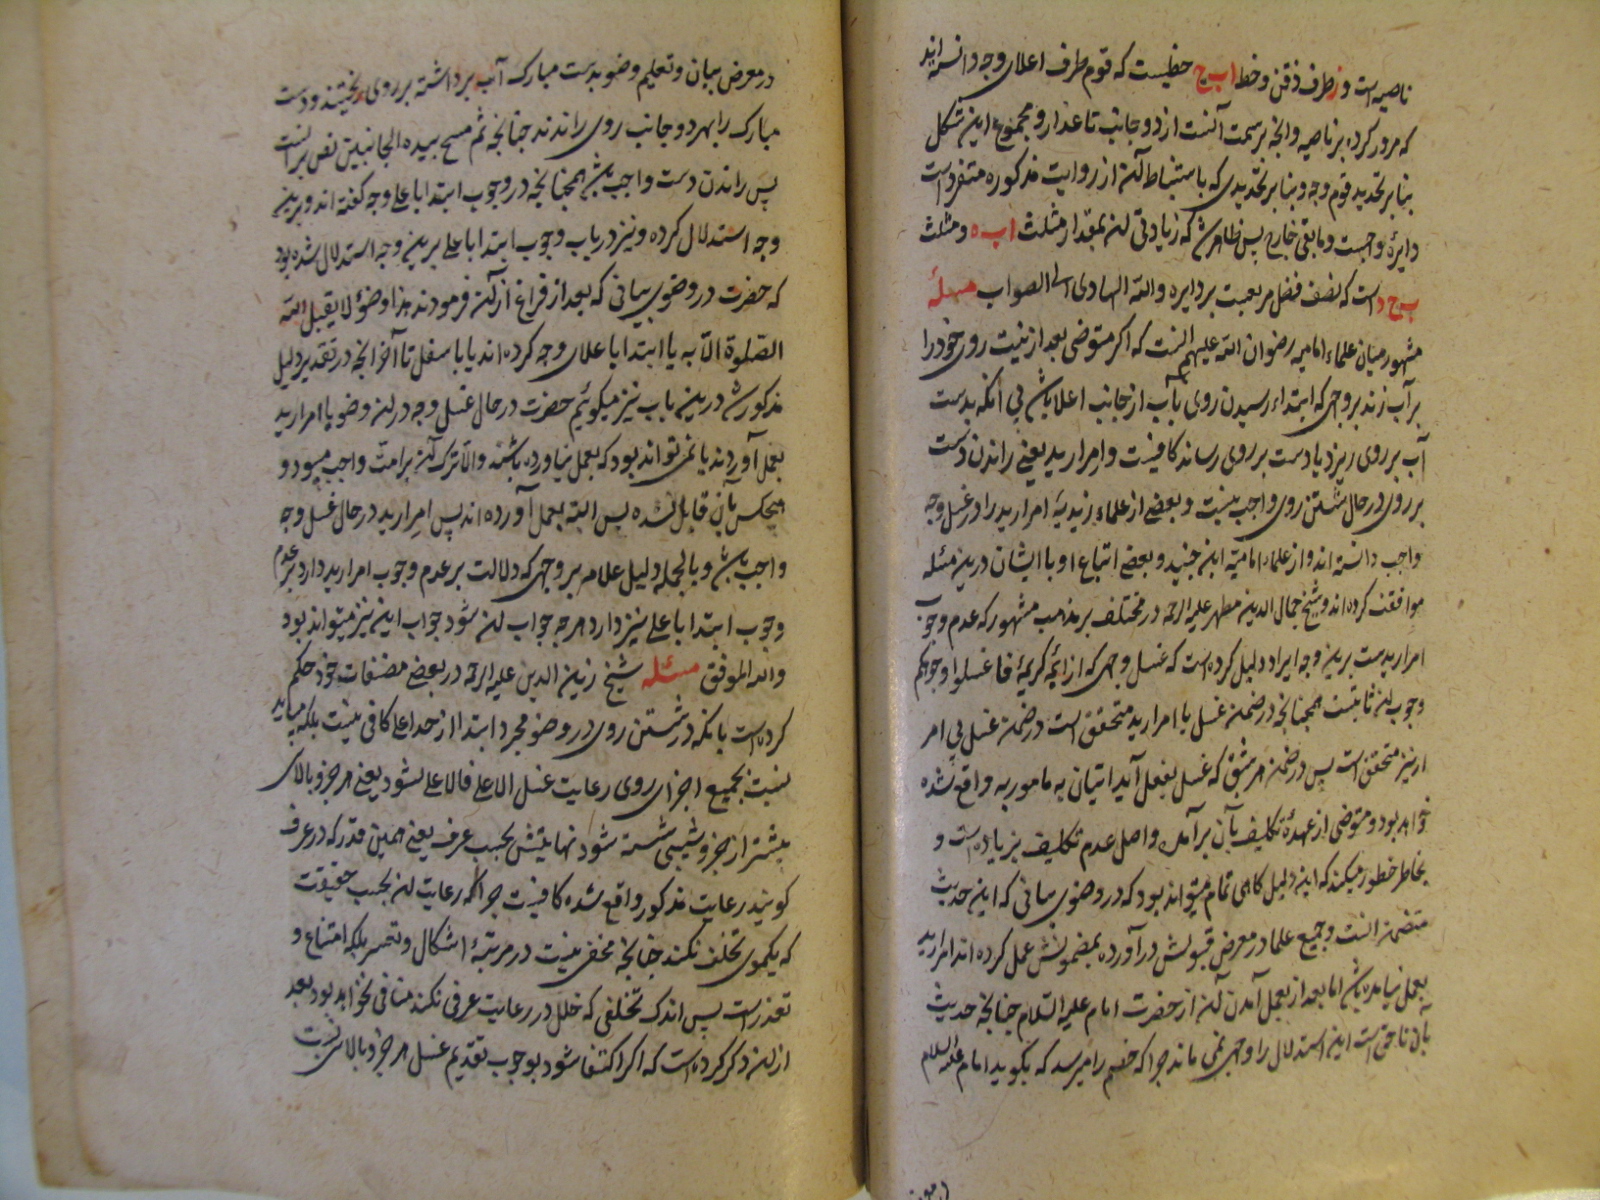 ناصیه است و ز طرف ذقن و خط ا ب ج خطیست که قوم طرف اعلای وجه دانسته‌اند
که مرور کرده بر ناصیه و آنچه بر سمت آنست از دو جانب تا عذار و مجموع این شکل
بنابر تحدید قوم وجه و بنابر تحدیدی که باستنباط آن از روایت مذکوره متفرد است
دایرهٔ و مابقی خارج پس ظاهر شد که زیادتی آن بمقدار مثلث ا ب ه و مثلث
ب ج د است که نصف فضل مربعست بر دایره والله الهادی الی الصواب مسئلة
مشهور میان علماء امامیه رضوان الله علیهم آنست که اگر متوضی بعد از نیت روی خود را
بر آب زند بر وجهی که ابتداء رسیدن روی بآب از جانب اعلا باشد بی آنکه بدست
آب بر روی ریزد یا دست بر روی رساند کافیست و امرار ید یعنی راندن دست
بر روی در حال شستن روی واجب نیست و بعضی از علماء زیدیه امرار ید را در غسل وجه
واجب دانسته‌اند و از علماء امامیه ابن جنید و بعضی اتباع او با ایشان درین مسئله
موافقت کرده‌اند و شیخ جمال الدین مطهر علیه الرحمه در مختلف بر مذهب مشهور که عدم وجوب
امرار یدست برین وجه ایراد دلیل کرده است که غسل وجهی که از آیهٔ کریمهٔ فاغسلوا وجوهکم
وجوب آن ثابتست همچنانچه در ضمن غسل با امرار ید متحقق است در ضمن غسل بی امر
ار نیز متحقق است پس در ضمن هر شق که غسل بفعل آید اتیان به مامور به واقع شده
خواهد بود و متوضی از عهدهٔ تکلیف بآن برآمده و اصل عدم تکلیف بزیاده است و
بخاطر خطور میکند که این دلیل گاهی تمام میتواند بود که در وضوی بیانی که این حدیث
متضمن آنست و جمیع علما در معرض قبولش درآورده بمضمونش عمل کرده‌اند امرار ید
بعمل نیامده باشد اما بعد از بعمل آمدن آن از حضرت امام علیه السلام چنانچه حدیث
بآن ناطق است این استدلال را وجهی نمی ماند چرا که خصم را میرسد که بگوید امام علیه السلام
در معرض بیان و تعلیم وضو بدست مبارک آب برداشته بر روی ریختند و دست
مبارک را بهر دو جانب روی راندند چنانچه ثم مسح بیده الجانبین نص بر آنست
پس راندن دست واجب باشد همچنانچه در وجوب ابتدا باعلی وجه گفته‌اند و برین
وجه استدلال کرده و نیز در باب وجوب ابتدا باعلی برین وجه استدلال شده بود
که حضرت در وضوی بیانی که بعد از فراغ از آن فرمودند هذا وضوء لا یقبل الله
الصلوة الا به یا ابتدا باعلای وجه کرده‌اند یا باسفل تا آخر آنچه در تقدیر دلیل
مذکور شد درین باب نیز میگوئیم حضرت در حال غسل وجه در آن وضو یا امرار ید
بعمل آوردند یا نمی تواند بود که بعمل نیاورده باشند والا ترک آن بر امت واجب میبود و
هیچکس بآن قایل نشده پس البته بعمل آورده‌اند پس امرار ید در حال غسل وجه
واجب باشد و بالجمله دلیل علامه بر وجهی که دلالت بر عدم وجوب امرار ید دارد بر عدم
وجوب ابتدا باعلی نیز دارد هرچه جواب آن شود جواب این نیز میتواند بود
والله الموفق مسئله شیخ زین الدین علیه الرحمه در بعضی مصنفات خود حکم
کرده است بآنکه در شستن روی در وضو مجرد ابتدا از حد اعلی کافی نیست بلکه میباید
نسبت بجمیع اجزای روی رعایت غسل الاعلی فالاعلی بشود یعنی هر جزو بالای
بیشتر از جزو شیبی شسته شود نهایتش بحسب عرف یعنی همین قدر که در عرف
گویند رعایت مذکور واقع شده کافیست چرا که رعایت آن بحسب حقیقت
که یکموی تخلف نکند چنانچه مخفی نیست در مرتبهٔ اشکال و تعسر بلکه امتناع و
تعذر است پس اندک تخلفی که خلل در رعایت عرفی نکند منافی نخواهد بود بعد
از آن ذکر کرده است که اگر اکتفا شود بوجوب تقدیم غسل هر جزو بالای نسبت